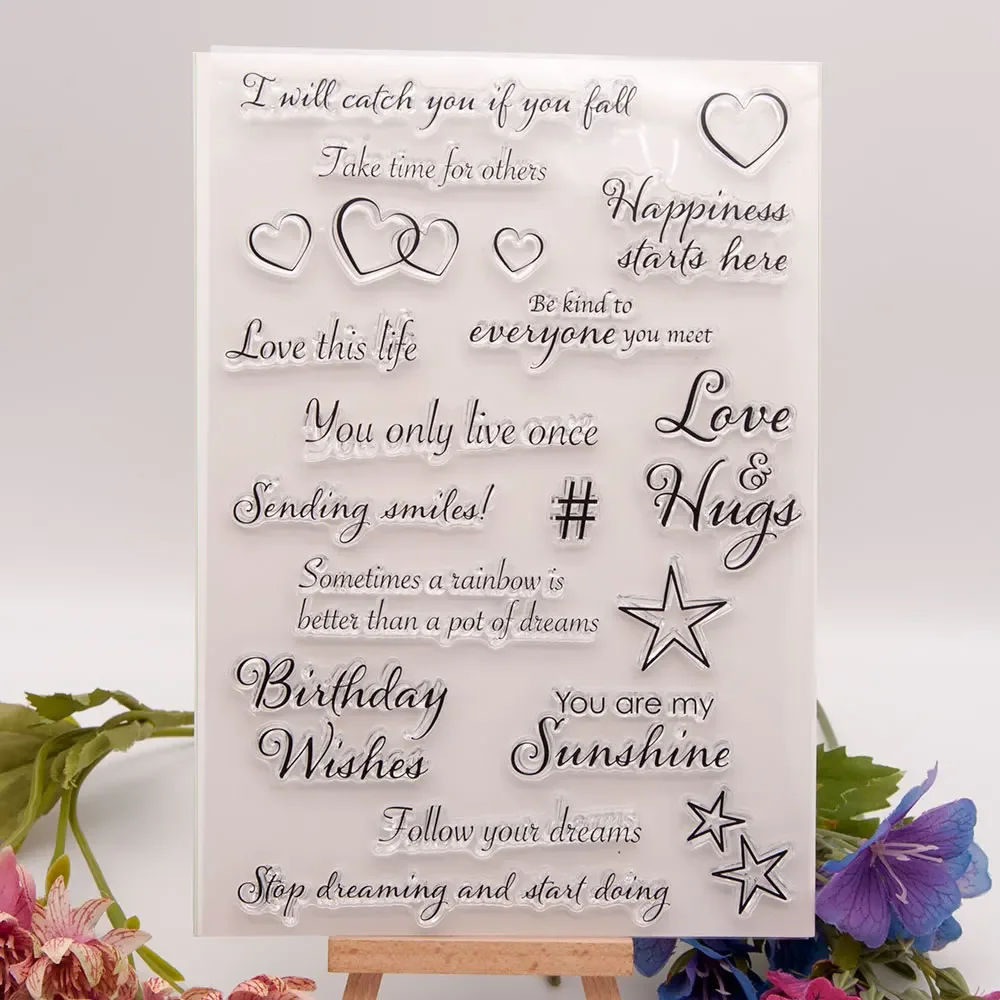 I will catch you if you fall
Take time for others
Happiness
starts here
Be kind to
everyone you meet
Love this life
Love
&
Hugs
You only live once
Sending smiles!
#
Sometimes a rainbow is
better than a pot of dreams
Birthday
Wishes
You are my
Sunshine
Follow your dreams
Stop dreaming and start doing